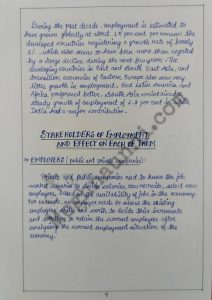 During the past decade, employment is estimated to
have grown globally at about 1.5 per cent per annum the
developed countries registering a growth rate of barely
1%, which also seems to have been more than negated
by a large decline during the next few years. The
developing countries in East and South East Asia, and
transition economies of Eastern Europe also saw very
little growth in employment. But Latin America and
Africa performed better. South Asia maintained a
steady growth of employment of 2.2 per cent in which
India had a major contribution.
STAKEHOLDERS OF EMPLOYMENT
AND EFFECT ON EACH OF THEM
EMPLOYERS (public and private companies):
Private and public companies need to know the job
market scenario to decide salaries, new recruits, select new
employees, based on the availability of jobs in the economy.
For example, an employer needs to assess the existing
employees' value and worth to decide their increments
and whether to retain the current employees after
analysing the current employment situation of the
economy.
9